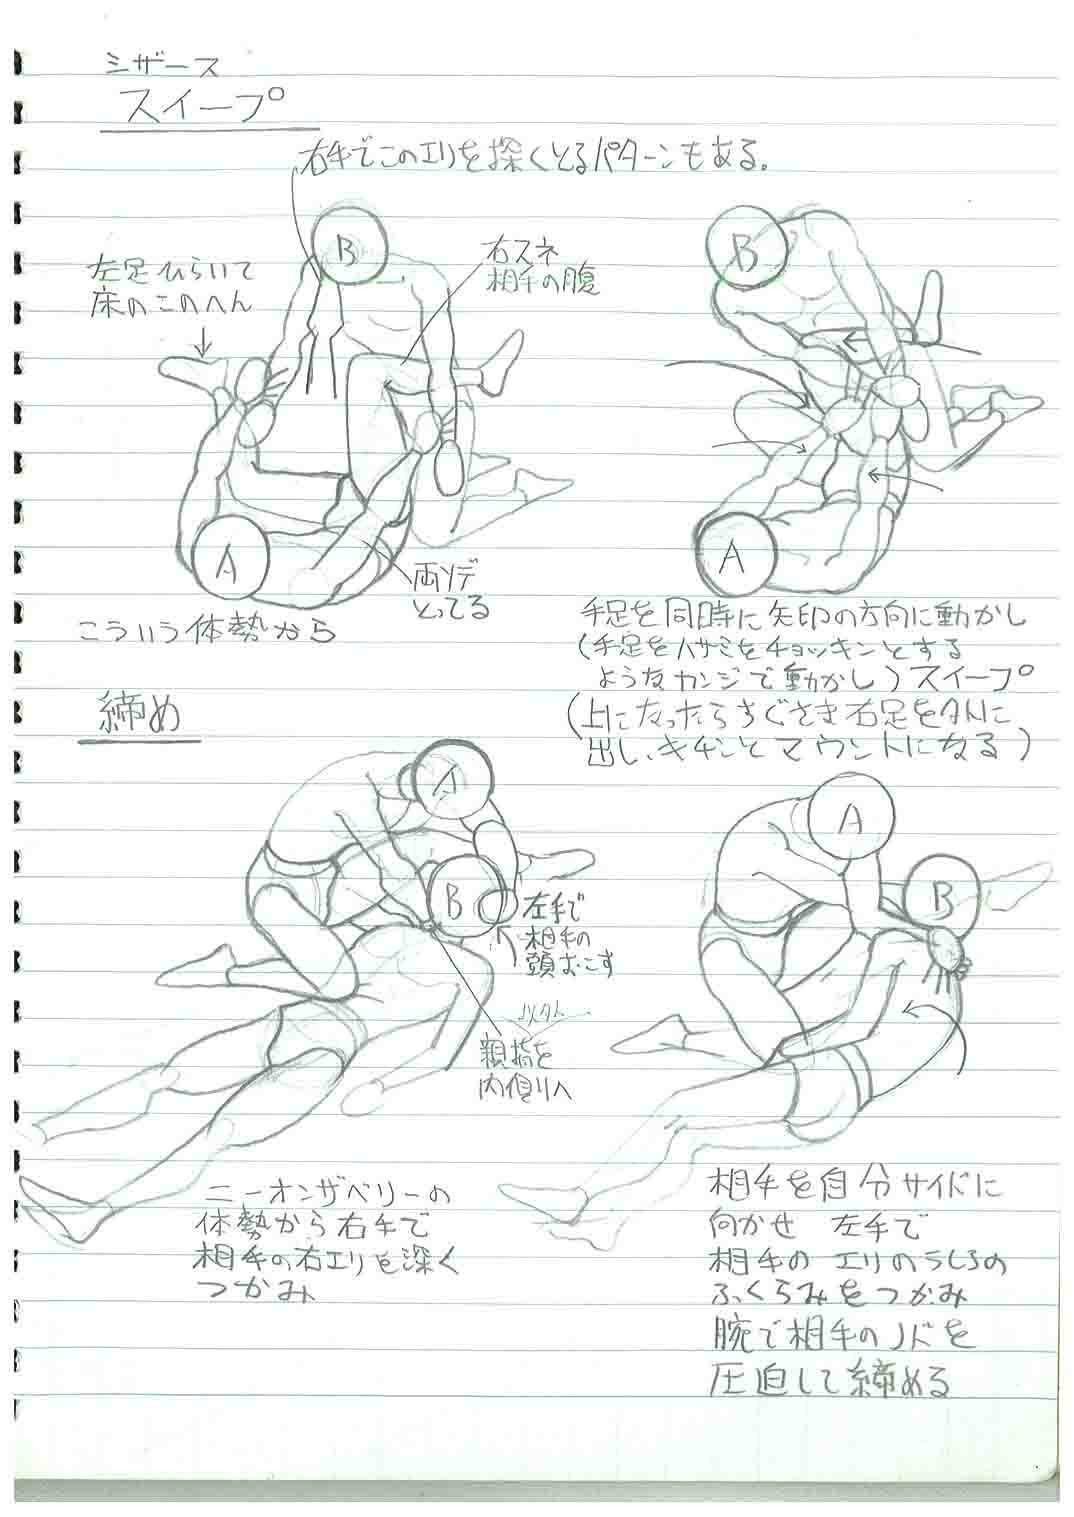 シザース
スイープ
右手でこのエリを深くとるパターンもある。
B
左足ひらいて
床のこのへん
右スネ
相手の腹
A
両ソデ
とってる
こういう体勢から
B
A
手足を同時に矢印の方向に動かし
(手足をハサミをチョッキンとする
ようなカンジで動かし)スイープ
(上になったらすぐさま右足を外に
出し、キチンとマウントになる)
締め
A
B
左手で
相手の
頭おこす
親指を
内側へ
ニーオンザベリーの
体勢から右手で
相手の右エリを深く
つかみ
A
B
相手を自分サイドに
向かせ 左手で
相手の エリのうしろの
ふくらみをつかみ
腕で相手のノドを
圧迫して締める